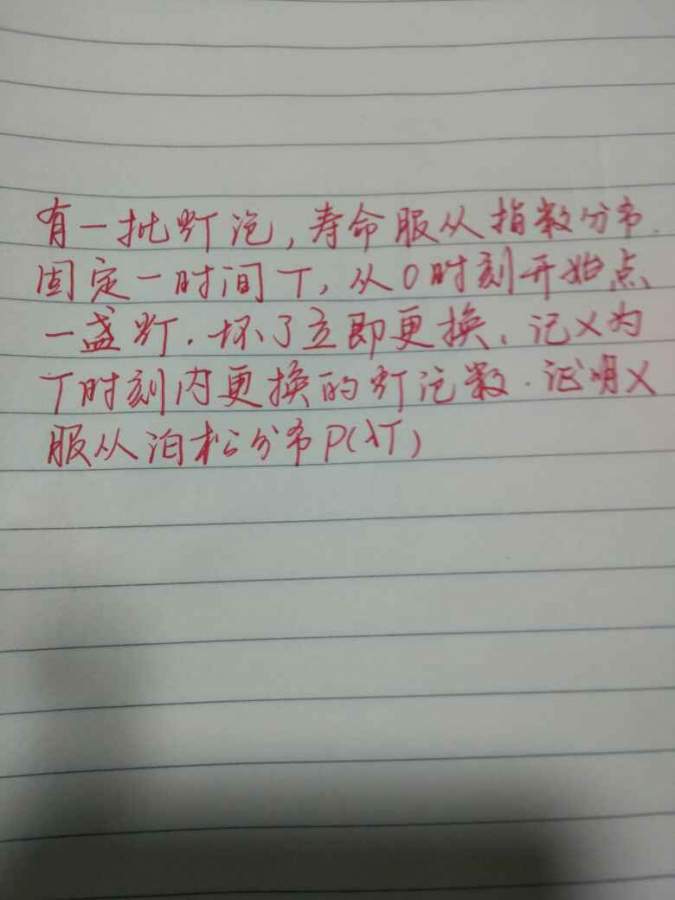 有一批灯泡,寿命服从指数分布.
固定一时间T,从0时刻开始点
一盏灯.坏了立即更换.记X为
T时刻内更换的灯泡数.证明X
服从泊松分布P(λT)